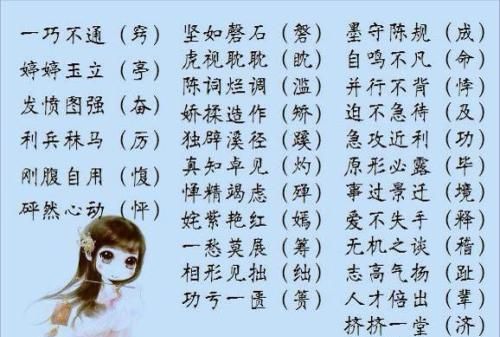 一巧不通（窍）
婷婷玉立（亭）
发愤图强（奋）
利兵秣马（厉）
刚腹自用（愎）
砰然心动（怦）
坚如磬石（磐）
虎视耽耽（眈）
陈词烂调（滥）
娇揉造作（矫）
独辟溪径（蹊）
真知卓见（灼）
惮精竭虑（殚）
姹紫艳红（嫣）
一愁莫展（筹）
相形见拙（绌）
功亏一匮（篑）
墨守陈规（成）
自鸣不凡（命）
并行不背（悖）
迫不急待（及）
急攻近利（功）
原形必露（毕）
事过景迁（境）
爱不失手（释）
无机之谈（稽）
志高气扬（趾）
人才倍出（辈）
挤挤一堂（济）